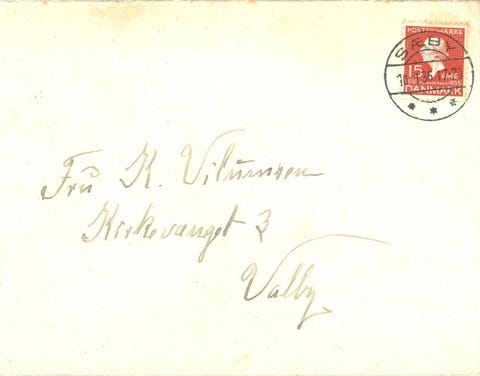 POSTFRIMÆRKE
SÆBY
15 ØRE
1935
DANMARK
Fru K. Vilumsen
Kirkevanget 3
Valby